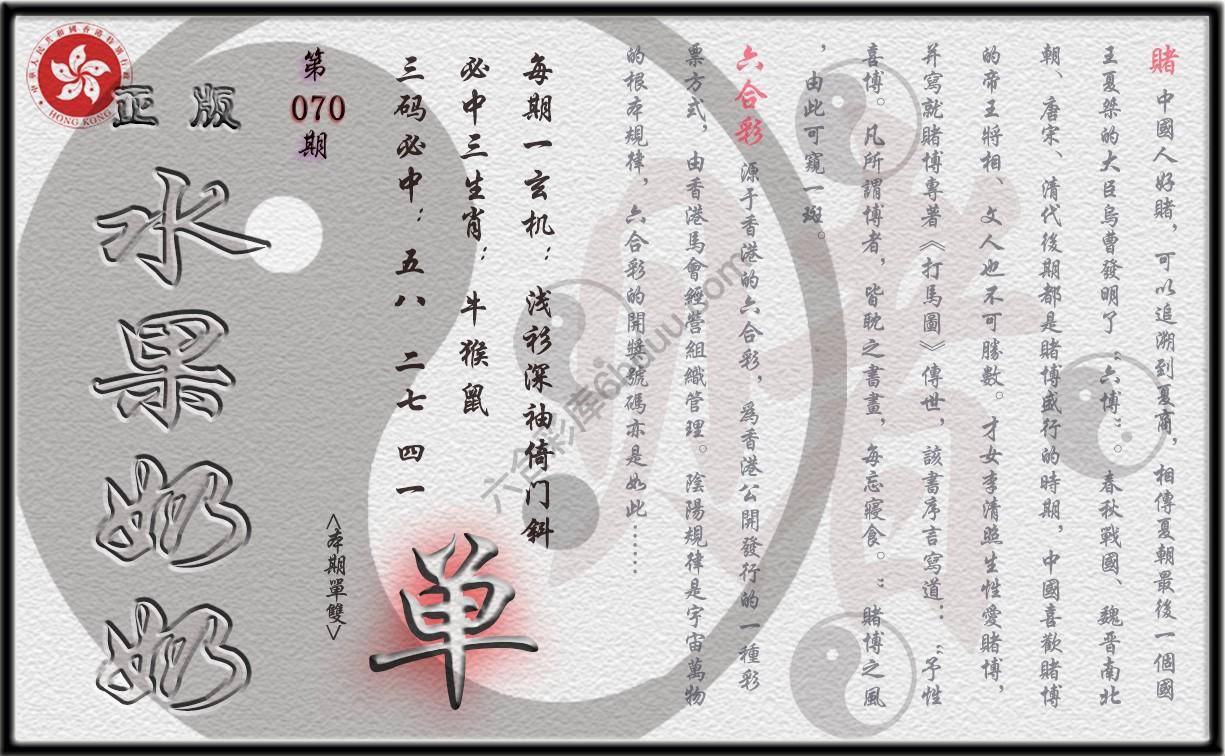 賭 中國人好賭，可以追溯到夏商，相傳夏朝最後一個國
王夏桀的大臣烏曹發明了“六博”。春秋戰國、魏晋南北
朝、唐宋、清代後期都是賭博盛行的時期，中國喜歡賭博
的帝王將相、文人也不可勝數。才女李清照生性愛賭博，
并寫就賭博專著《打馬圖》傳世，該書序言寫道：“予性
喜博。凡所謂博者，皆耽之書畫，每忘寢食。”賭博之風
，由此可窺一斑。
六合彩 源于香港的六合彩，爲香港公開發行的一種彩
票方式，由香港馬會經營組織管理。陰陽規律是宇宙萬物
的根本規律，六合彩的開獎號碼亦是如此……
每期一玄机：浅衫深袖倚门斜
必中三生肖：牛猴鼠
三码必中：五八 二七 四一
<本期單雙>
单
第
070
期
正版
水果奶奶
中華人民共和國香港特別行政區
HONG KONG
六合彩库6hduu.com